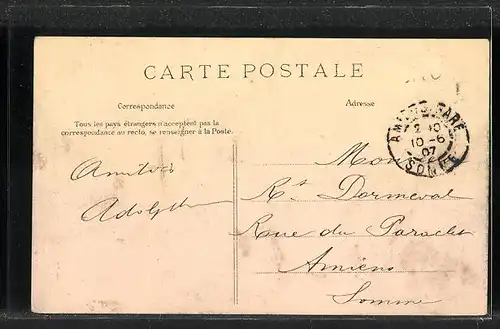 CARTE POSTALE
Correspondance
Tous les pays étrangers n'acceptent pas la
correspondance au recto, se renseigner à la Poste.
Adresse
AMIENS-GARE
2 10
10-6
07
SOMME
Amitiés
Adolphe
Mon
Rt Dormeval
Rue du Paraclet
Amiens
Somme